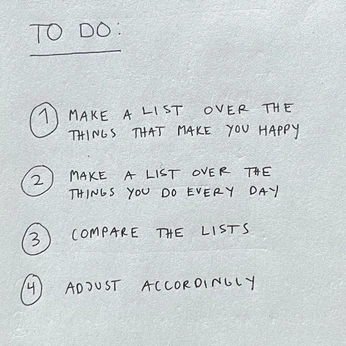 TO DO:
1 MAKE A LIST OVER THE
THINGS THAT MAKE YOU HAPPY
2 MAKE A LIST OVER THE
THINGS YOU DO EVERY DAY
3 COMPARE THE LISTS
4 ADJUST ACCORDINGLY